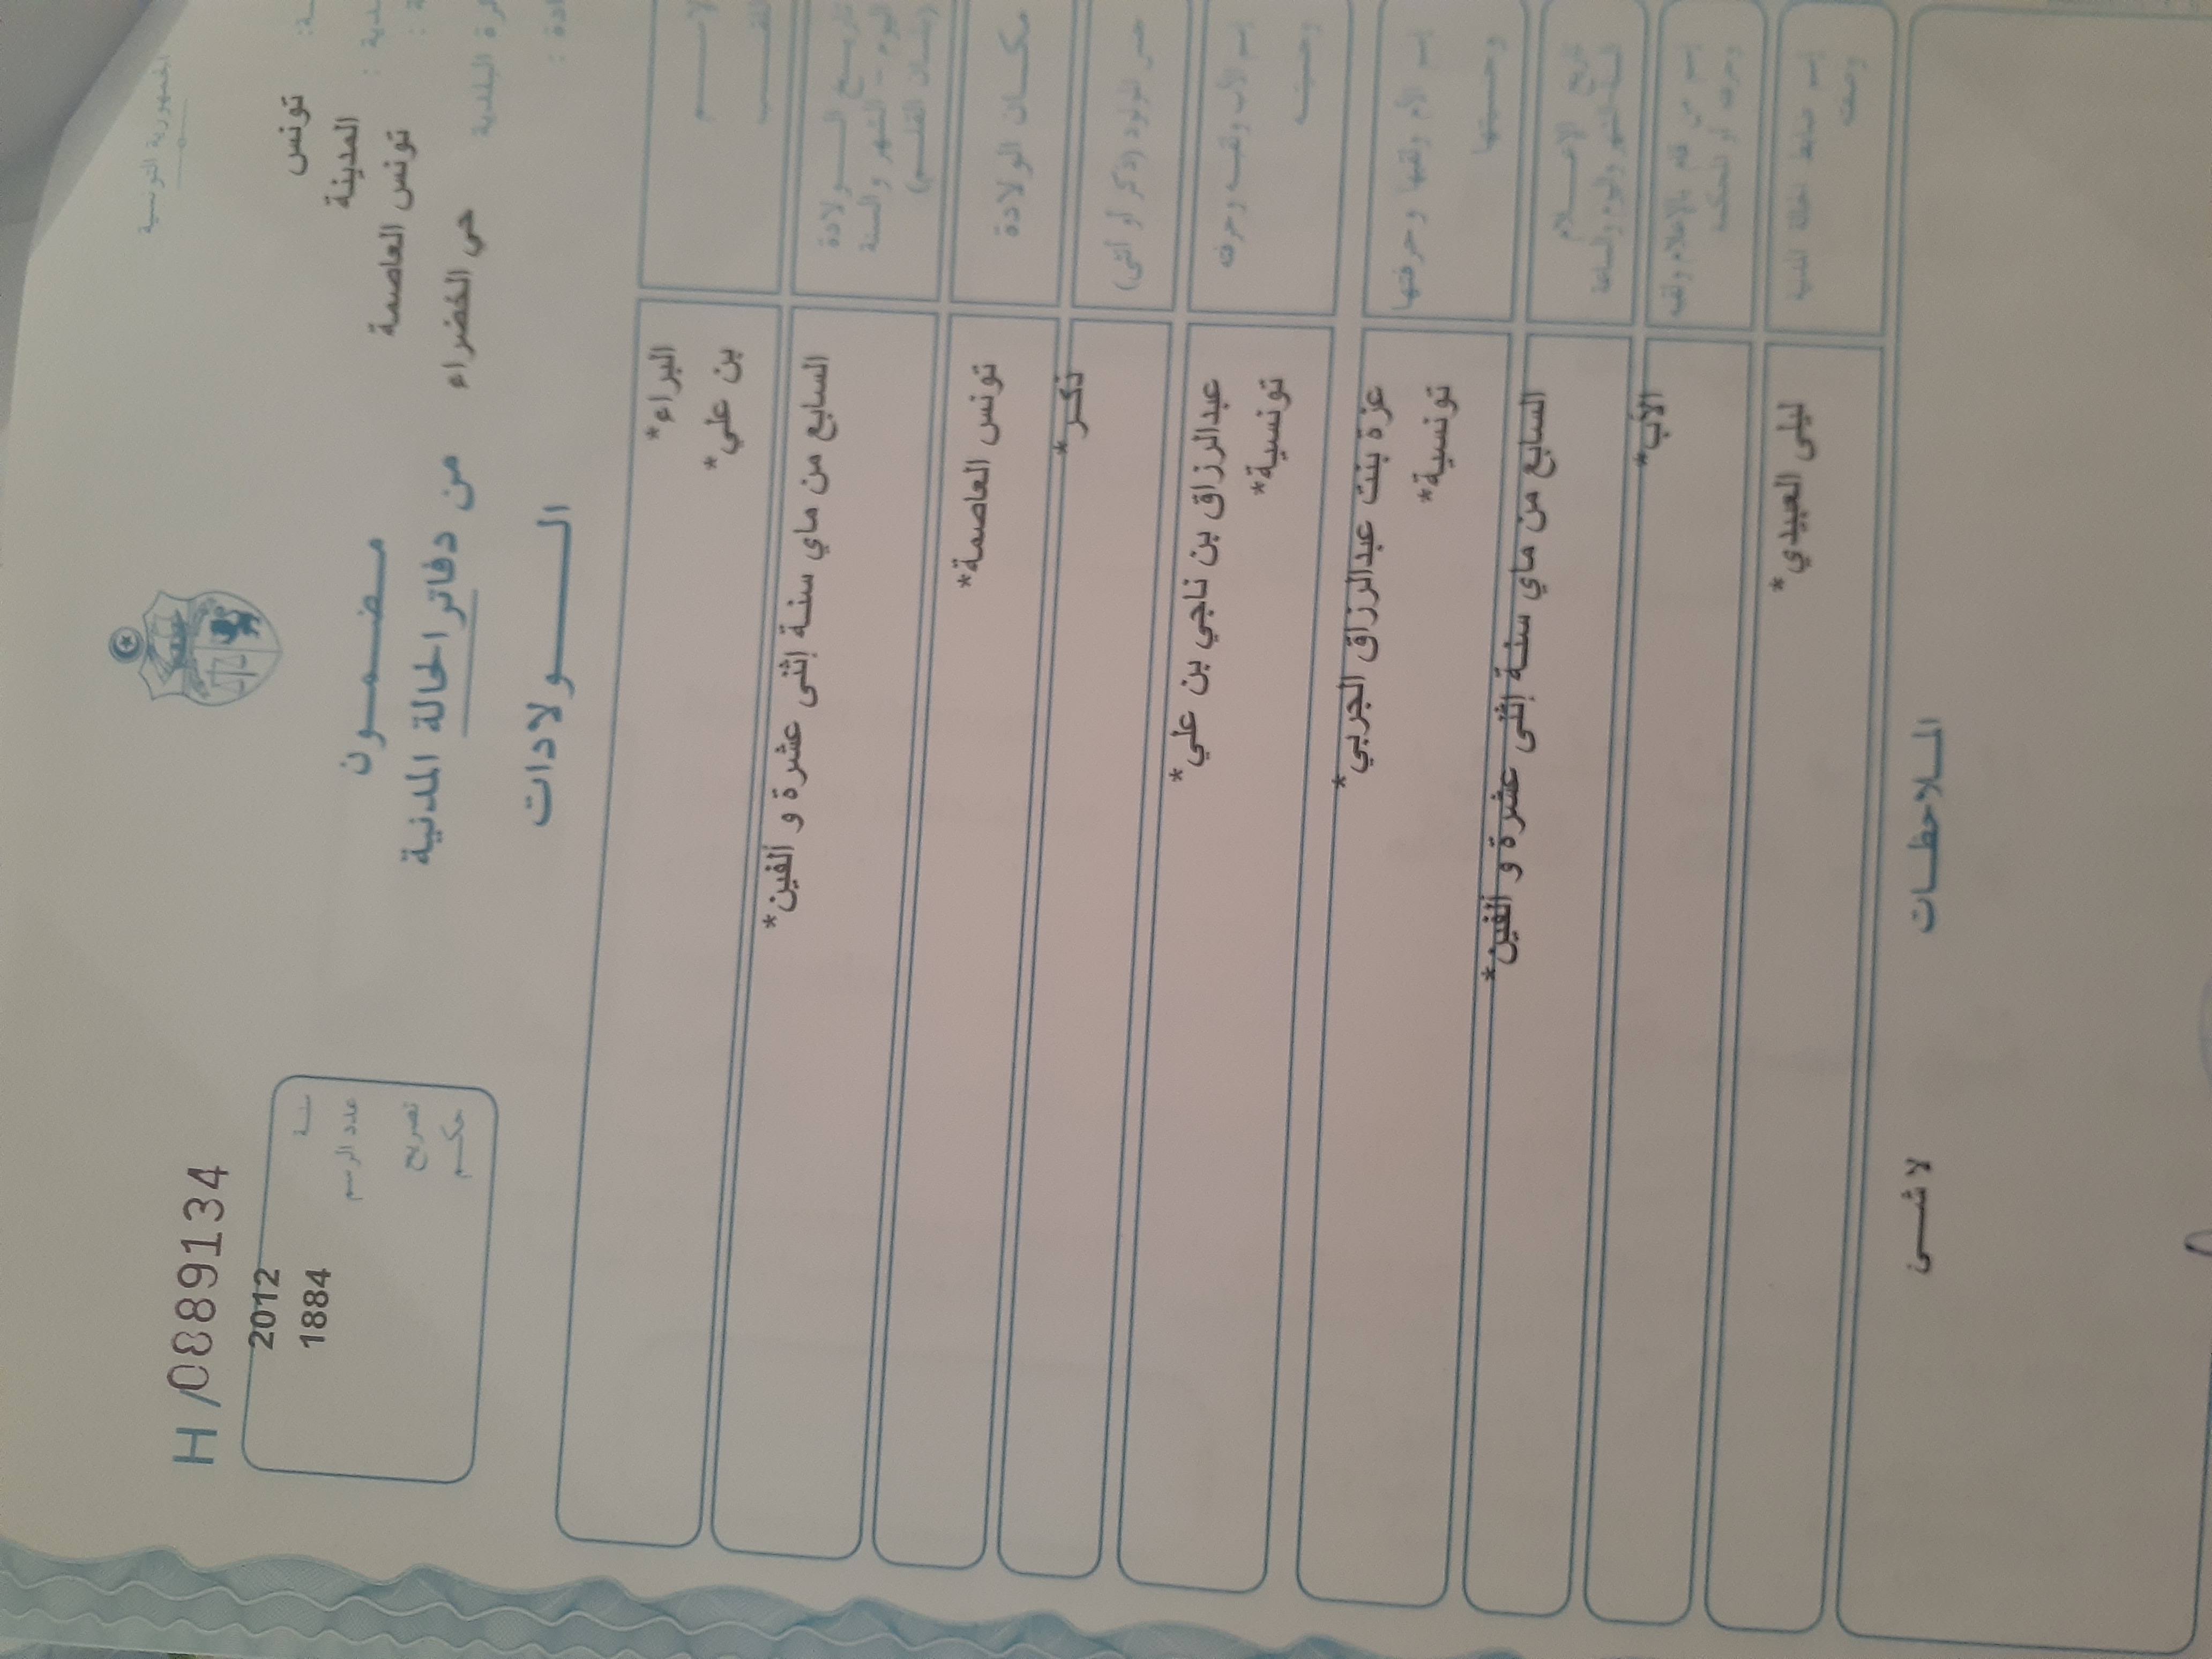 الجمهورية التونسية
H/0889134
تونس
المدينة
تونس العاصمة
حي الخضراء
سنة 2012
عدد الرسم 1884
تصريح
حكم
مضمون
من دفاتر الحالة المدنية
الولادات
الاسم البراء*
اللقب بن علي*
تاريخ الولادة
اليوم - الشهر والسنة
(بلسان القلم)
السابع من ماي سنة إثنى عشرة و ألفين*
مكان الولادة تونس العاصمة*
جنس المولود (ذكر أو أنثى) ذكر*
إسم الأب ولقبه وحرفته عبدالرزاق بن ناجي بن علي*
وجنسيته تونسية*
إسم الأم ولقبها وحرفتها عزة بنت عبدالرزاق الجربي*
وجنسيتها تونسية*
تاريخ الإعلام
السنة الشهر واليوم والساعة
السابع من ماي سنة إثنى عشرة و ألفين*
إسم من قام بالإعلام ولقبه
وحرفته أو المحكمة
الأب*
إسم ضابط الحالة المدنية
وصفته
ليلى العبيدي*
الملاحظات
لا شىء